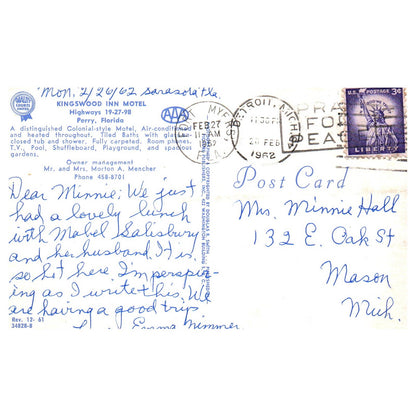 Mon, 2/26/62 Sarasota Fla.
KINGSWOOD INN MOTEL
Highways 19-27-98
Perry, Florida
A distinguished Colonial-style Motel, Air-conditioned
and heated throughout. Tiled Baths with glass-en-
closed tub and shower. Fully carpeted. Room phones.
T.V., Pool, Shuffleboard, Playground, and spacious
gardens.
Owner management
Mr. and Mrs. Morton A. Mencher
Phone 458-8701
AAA
FEB 27
11 AM
1962
FLA.
DETROIT, MICH
11:30 PM
28 FEB
1962
PRAY
FOR
PEACE
U.S. POSTAGE 3¢
LIBERTY
Dear Minnie; We just
had a lovely lunch
with Mabel Salisbury
and her husband. It is
so hot here I'm perspir-
ing as I write this. We
are having a good trip.
Emma Nimmer
Rev. 12-61
34828-B
Post Card
Mrs. Minnie Hall
132 E. Oak St
Mason
Mich.